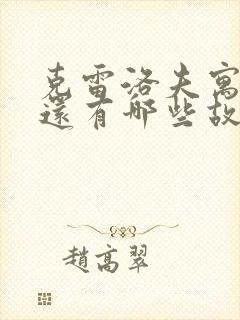 克雷洛夫寓
還有哪些故
趙高翠